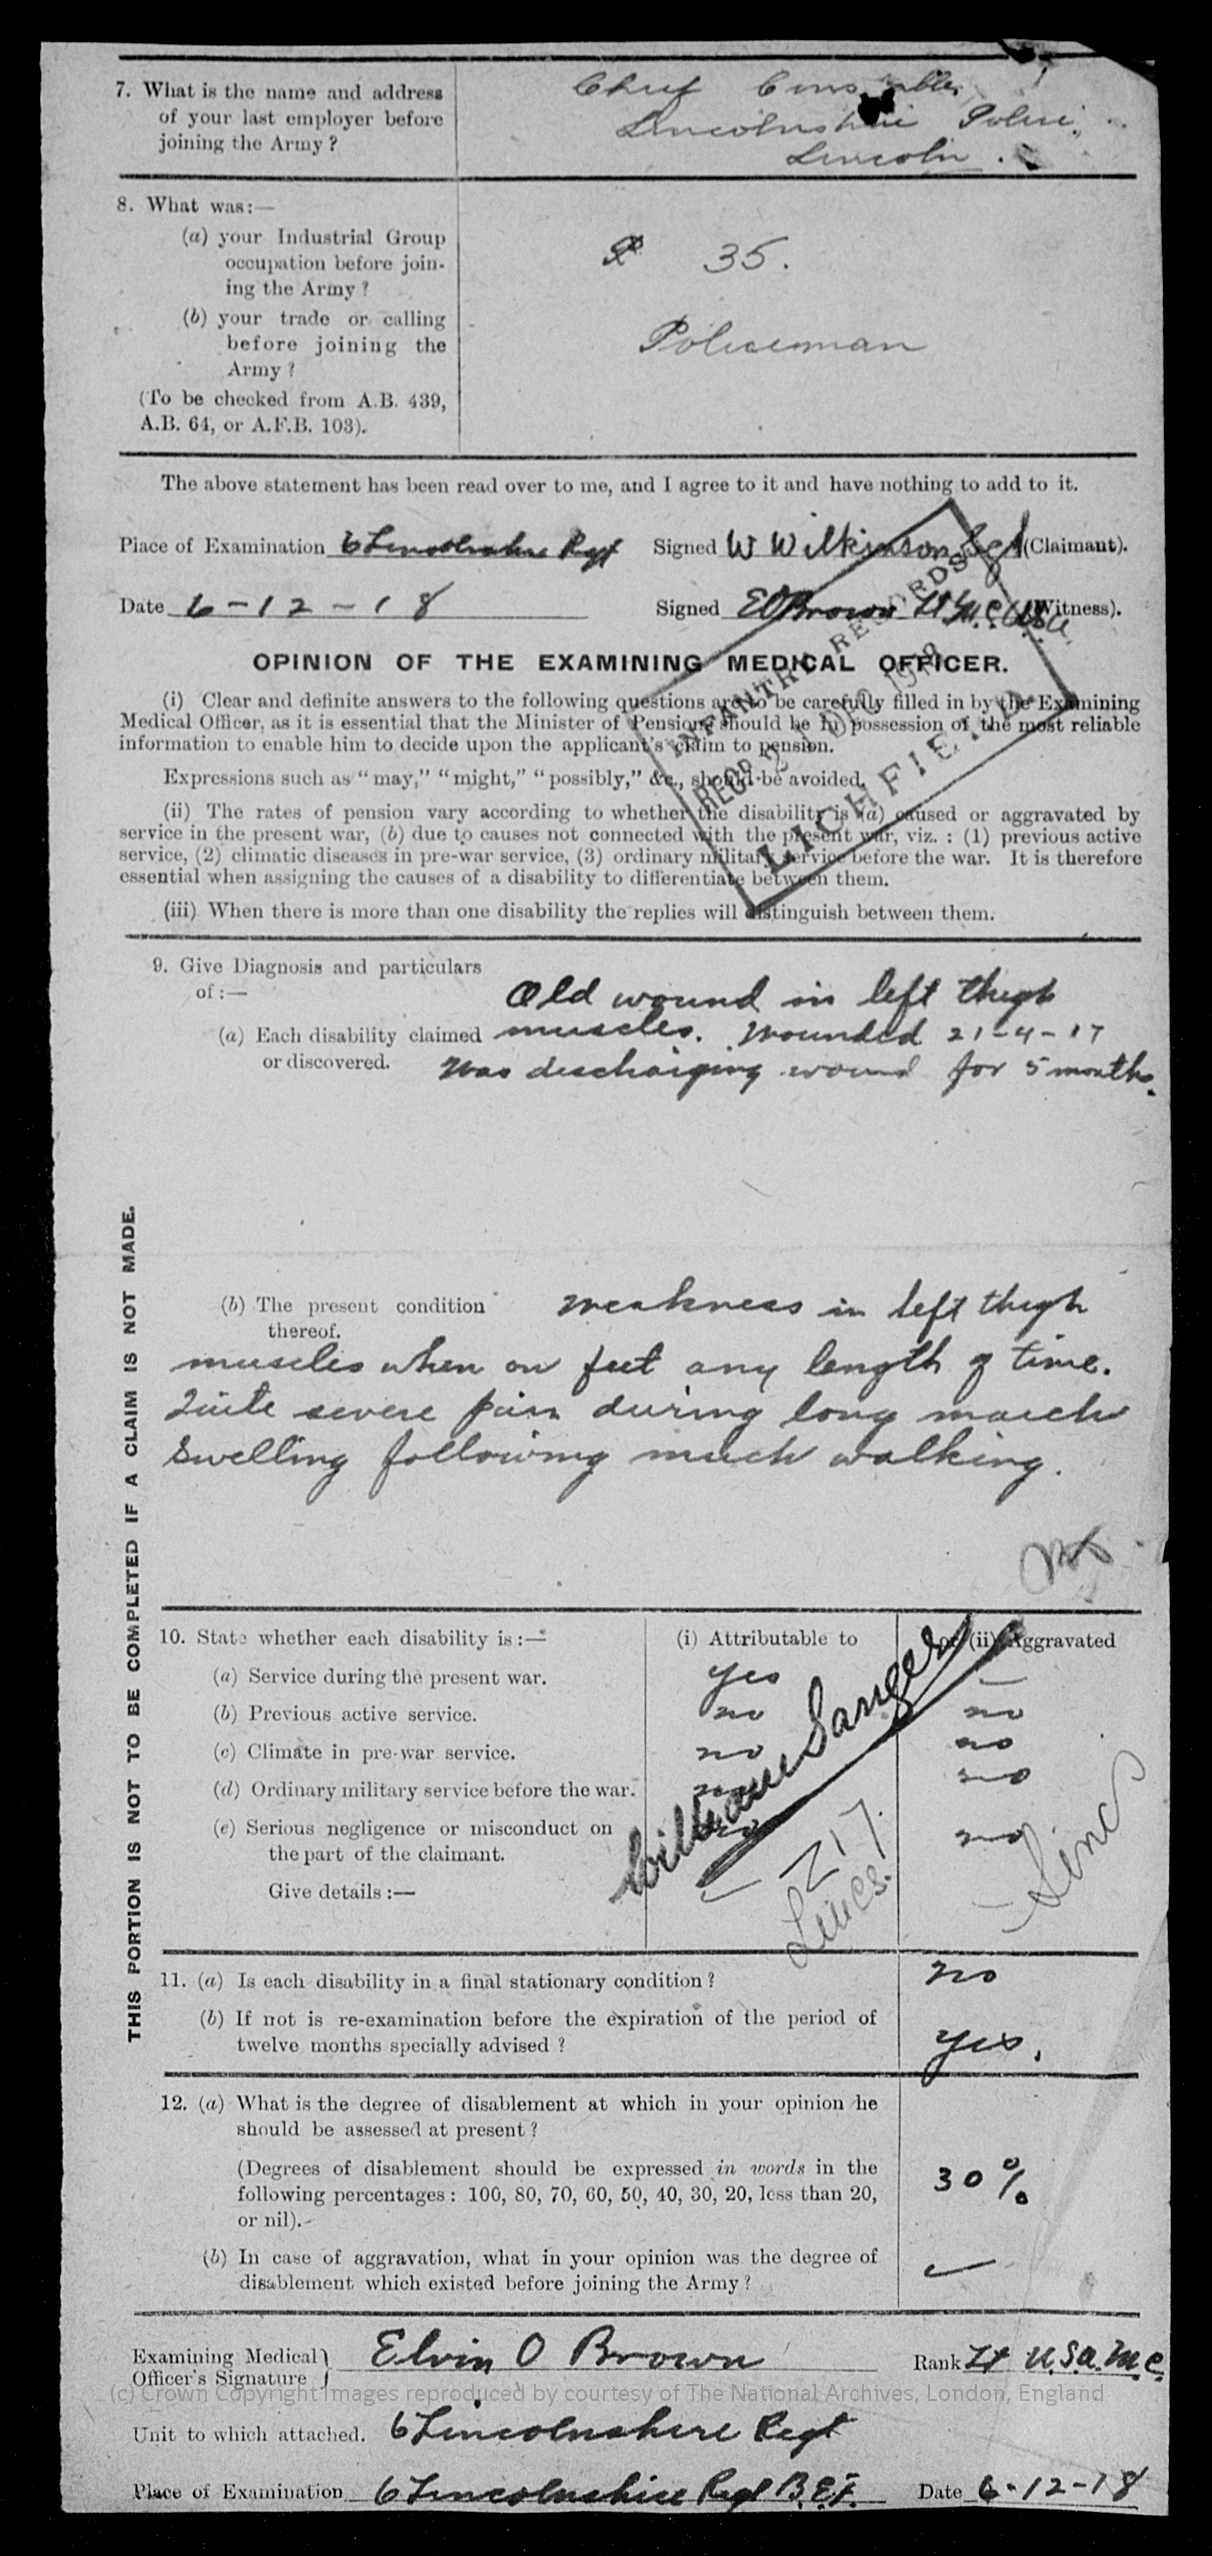 7. What is the name and address
of your last employer before
joining the Army?
Chief Constable,
Lincolnshire Police,
Lincoln.
8. What was:—
(a) your Industrial Group
occupation before join-
ing the Army?
35.
(b) your trade or calling
before joining the
Army?
Policeman
(To be checked from A.B. 439,
A.B. 64, or A.F.B. 103).
The above statement has been read over to me, and I agree to it and have nothing to add to it.
Place of Examination 6 Lincolnshire Regt Signed W Wilkinson Sgt (Claimant).
Date 6-12-18 Signed EOBrown Lt M.C. USA (Witness).
INFANTRY RECORDS
RECD 2 DEC 1918
LICHFIELD
OPINION OF THE EXAMINING MEDICAL OFFICER.
(i) Clear and definite answers to the following questions are to be carefully filled in by the Examining
Medical Officer, as it is essential that the Minister of Pensions should be in possession of the most reliable
information to enable him to decide upon the applicant's claim to pension.
Expressions such as "may," "might," "possibly," &c., should be avoided.
(ii) The rates of pension vary according to whether the disability is (a) caused or aggravated by
service in the present war, (b) due to causes not connected with the present war, viz.: (1) previous active
service, (2) climatic diseases in pre-war service, (3) ordinary military service before the war. It is therefore
essential when assigning the causes of a disability to differentiate between them.
(iii) When there is more than one disability the replies will distinguish between them.
9. Give Diagnosis and particulars
of:—
(a) Each disability claimed
or discovered.
Old wound in left thigh
muscles. Wounded 21-4-17
Was discharging wound for 5 months.
(b) The present condition
thereof.
Weakness in left thigh
muscles when on feet any length of time.
Quite severe pain during long march
Swelling following much walking.
THIS PORTION IS NOT TO BE COMPLETED IF A CLAIM IS NOT MADE.
10. State whether each disability is:— (i) Attributable to or (ii) Aggravated
(a) Service during the present war. yes —
(b) Previous active service. no no
(c) Climate in pre-war service. no no
(d) Ordinary military service before the war. no no
(e) Serious negligence or misconduct on
the part of the claimant. no no
Give details:—
William Sanger
217.
Lincs.
Lincs
11. (a) Is each disability in a final stationary condition? no
(b) If not is re-examination before the expiration of the period of
twelve months specially advised? yes.
12. (a) What is the degree of disablement at which in your opinion he
should be assessed at present?
(Degrees of disablement should be expressed in words in the
following percentages: 100, 80, 70, 60, 50, 40, 30, 20, less than 20,
or nil).
30%
(b) In case of aggravation, what in your opinion was the degree of
disablement which existed before joining the Army? —
Examining Medical
Officer's Signature Elvin O Brown Rank Lt U.S.A.M.C.
(c) Crown Copyright Images reproduced by courtesy of The National Archives, London, England
Unit to which attached. 6 Lincolnshire Regt
Place of Examination 6 Lincolnshire Regt B.E.F. Date 6-12-18